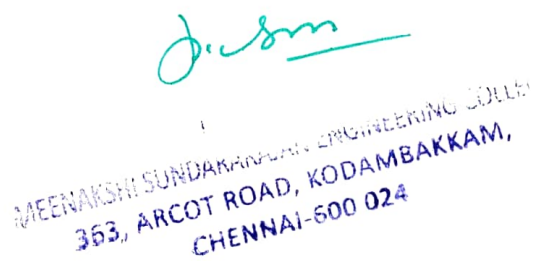 MEENAKSHI SUNDARARAJAN ENGINEERING COLLE
363, ARCOT ROAD, KODAMBAKKAM,
CHENNAI-600 024